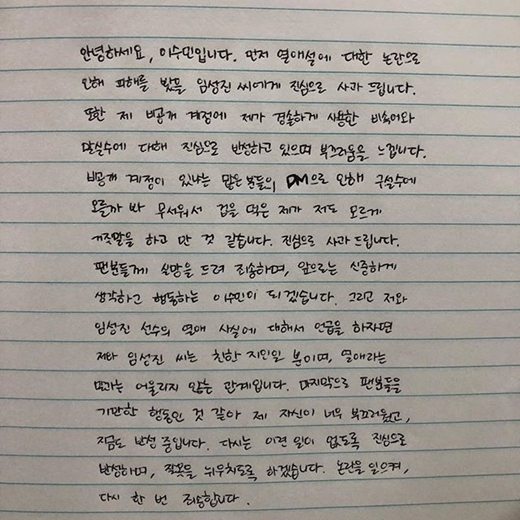 안녕하세요, 이수민입니다. 먼저 열애설에 대한 논란으로
인해 피해를 받을 임성진 씨에게 진심으로 사과 드립니다.
또한 제 비공개 계정에 제가 경솔하게 사용한 비속어와
말실수에 대해 진심으로 반성하고 있으며 부끄러움을 느낍니다.
비공개 계정이 있냐는 많은 분들의 DM으로 인해 구설수에
오를까 봐 무서워서 겁을 먹은 제가 저도 모르게
거짓말을 하고 만 것 같습니다. 진심으로 사과 드립니다.
팬분들께 실망을 드려 죄송하며, 앞으로는 신중하게
생각하고 행동하는 이수민이 되겠습니다. 그리고 저와
임성진 선수의 열애 사실에 대해서 언급을 하자면
저와 임성진 씨는 친한 지인일 분이며, 열애라는
말과는 어울리지 않는 관계입니다. 마지막으로 팬분들을
기만한 행동인 것 같아 제 자신이 너무 부끄러웠고,
지금도 반성 중입니다. 다시는 이런 일이 없도록 진심으로
반성하며, 잘못을 뉘우치도록 하겠습니다. 논란을 일으켜,
다시 한 번 죄송합니다.